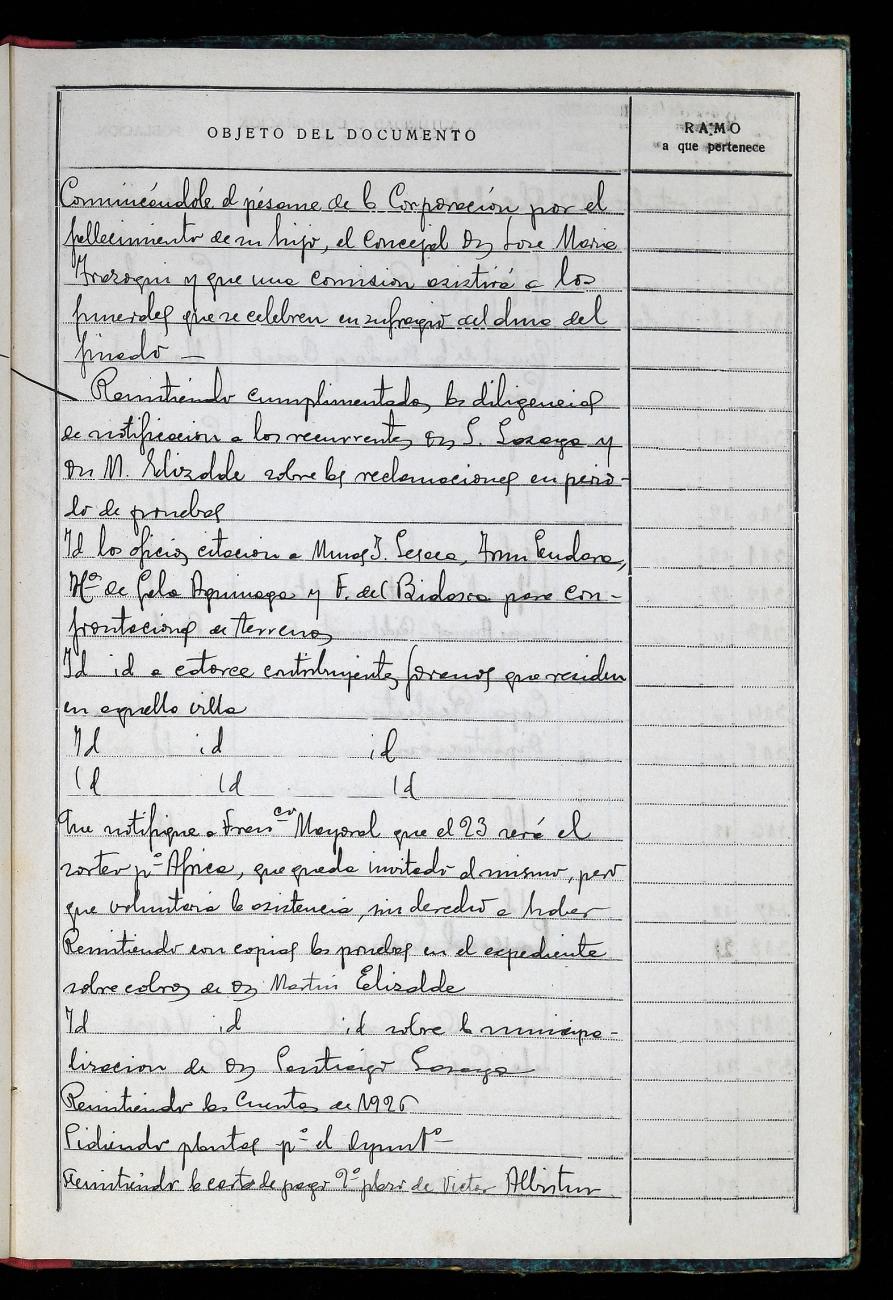 OBJETO DEL DOCUMENTO
RAMO
a que pertenece
Comunicándole el pésame de la Corporación por el
fallecimiento de su hijo, el Concejal Dn Jose Maria
Irazoqui y que una comision asistirá a los
funerales que se celebren en sufragio del alma del
finado —
Remitiendo cumplimentadas las diligencias
de notificacion a los recurrentes Dn S. Lazaga y
Dn M. Elizalde sobre las reclamaciones en perio-
do de pruebas
Id los oficios citacion a Minas I. Lesaca,
Hos de Gela Aguinaga y F. del Bidasoa para con-
frontaciones de terrenos
Id id a catorce contribuyentes foranos que residen
en aquella villa
Id id id
Id Id Id
Que notifique a Franco Mayoral que el 23 será el
sorteo pa Africa, que queda invitado al mismo, pero
que voluntaria la asistencia, sin derecho a haber
Remitiendo con copias las pruebas en el expediente
sobre cobros de Dn Martin Elizalde
Id id id sobre la municipa-
lizacion de Dn Santiago Lazaga
Remitiendo las Cuentas de 1926
Pidiendo plantas pa el Ayuntº
Remitiendo la carta de pago 2º plazo de Victor Albistur